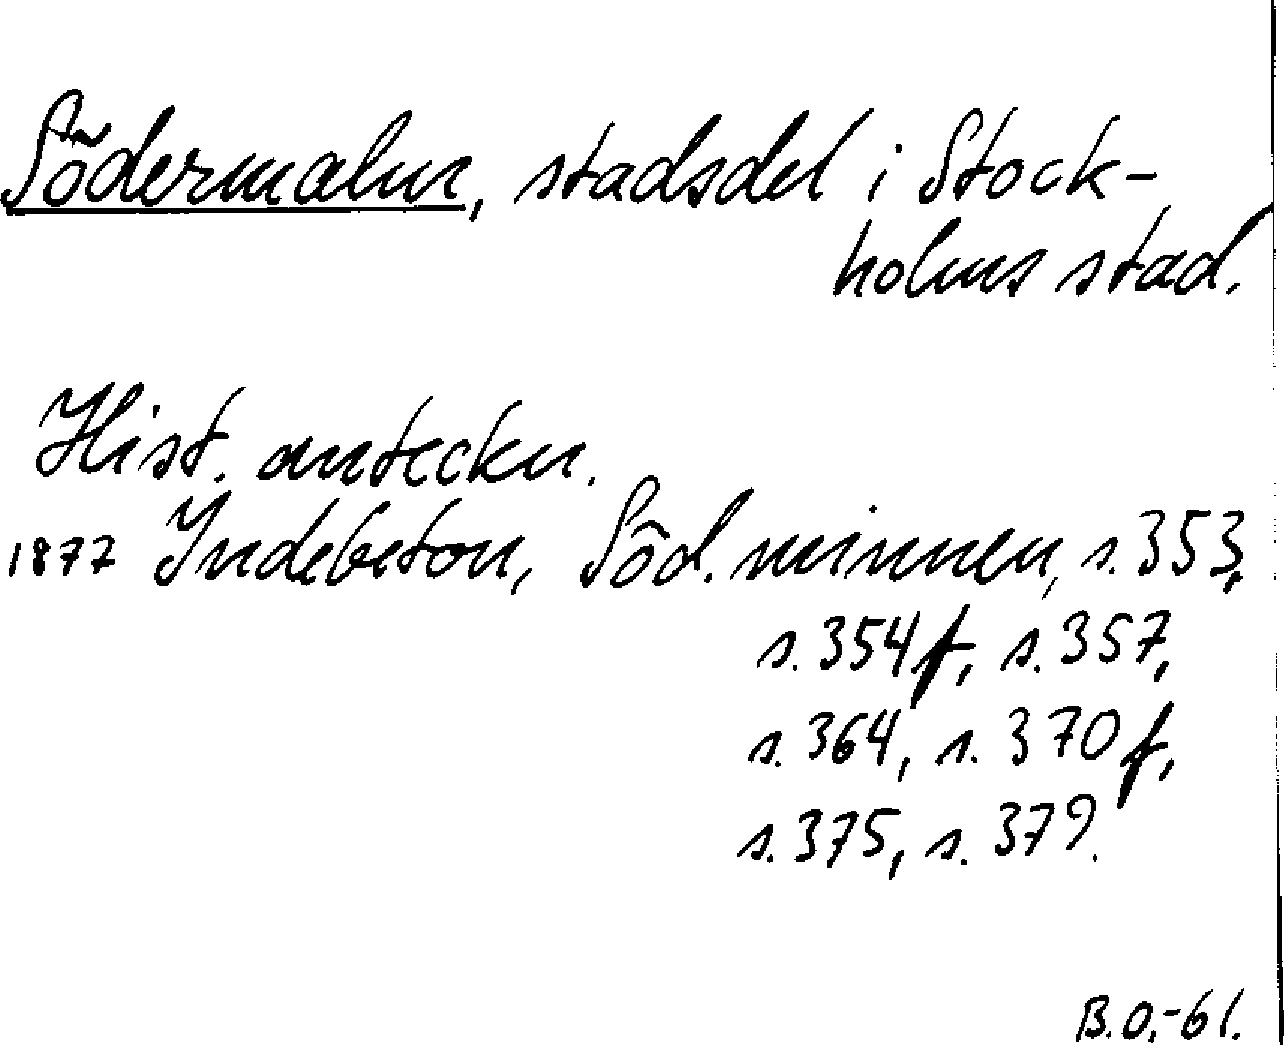 Södermalm, stadsdel i Stock-
holms stad.
Hist. anteckn.
1877 Indebetou, Söd. minnen, s. 353,
s. 354 f, s. 357,
s. 364, s. 370 f,
s. 375, s. 379.
B.O.-61.